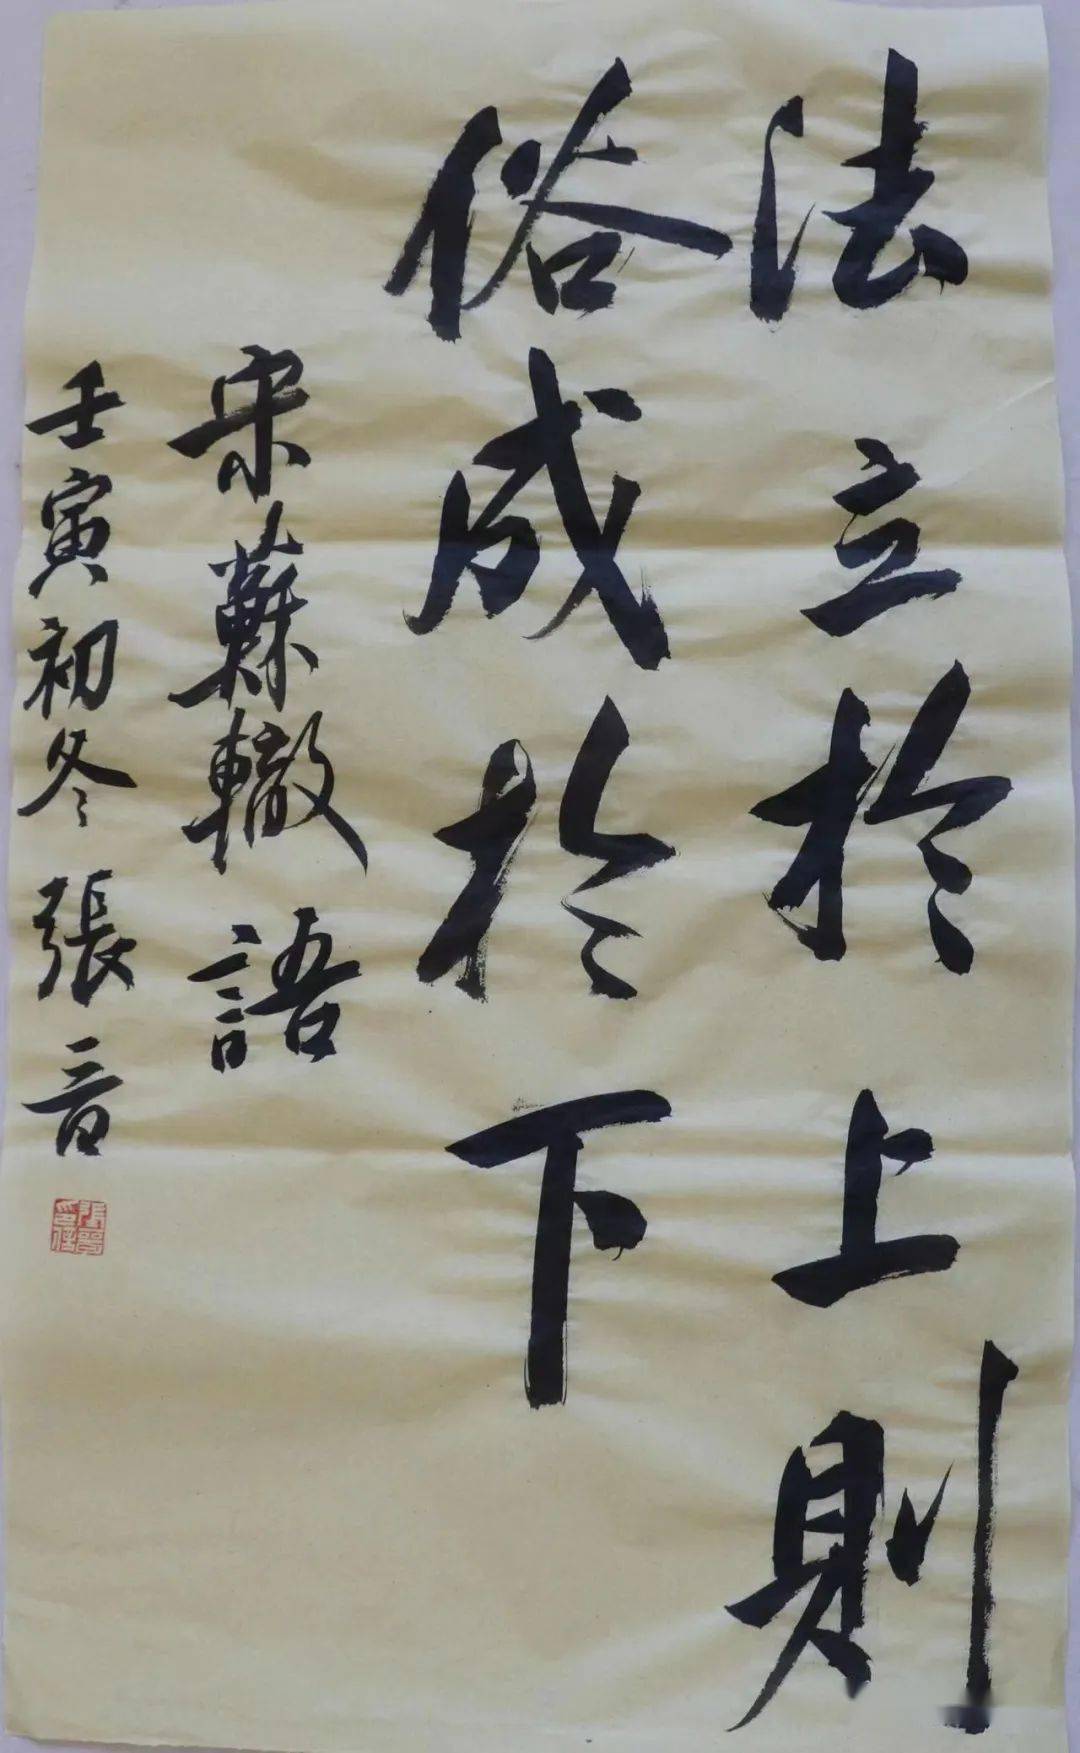 法立於上則
俗成於下
宋蘇轍語
壬寅初冬張音